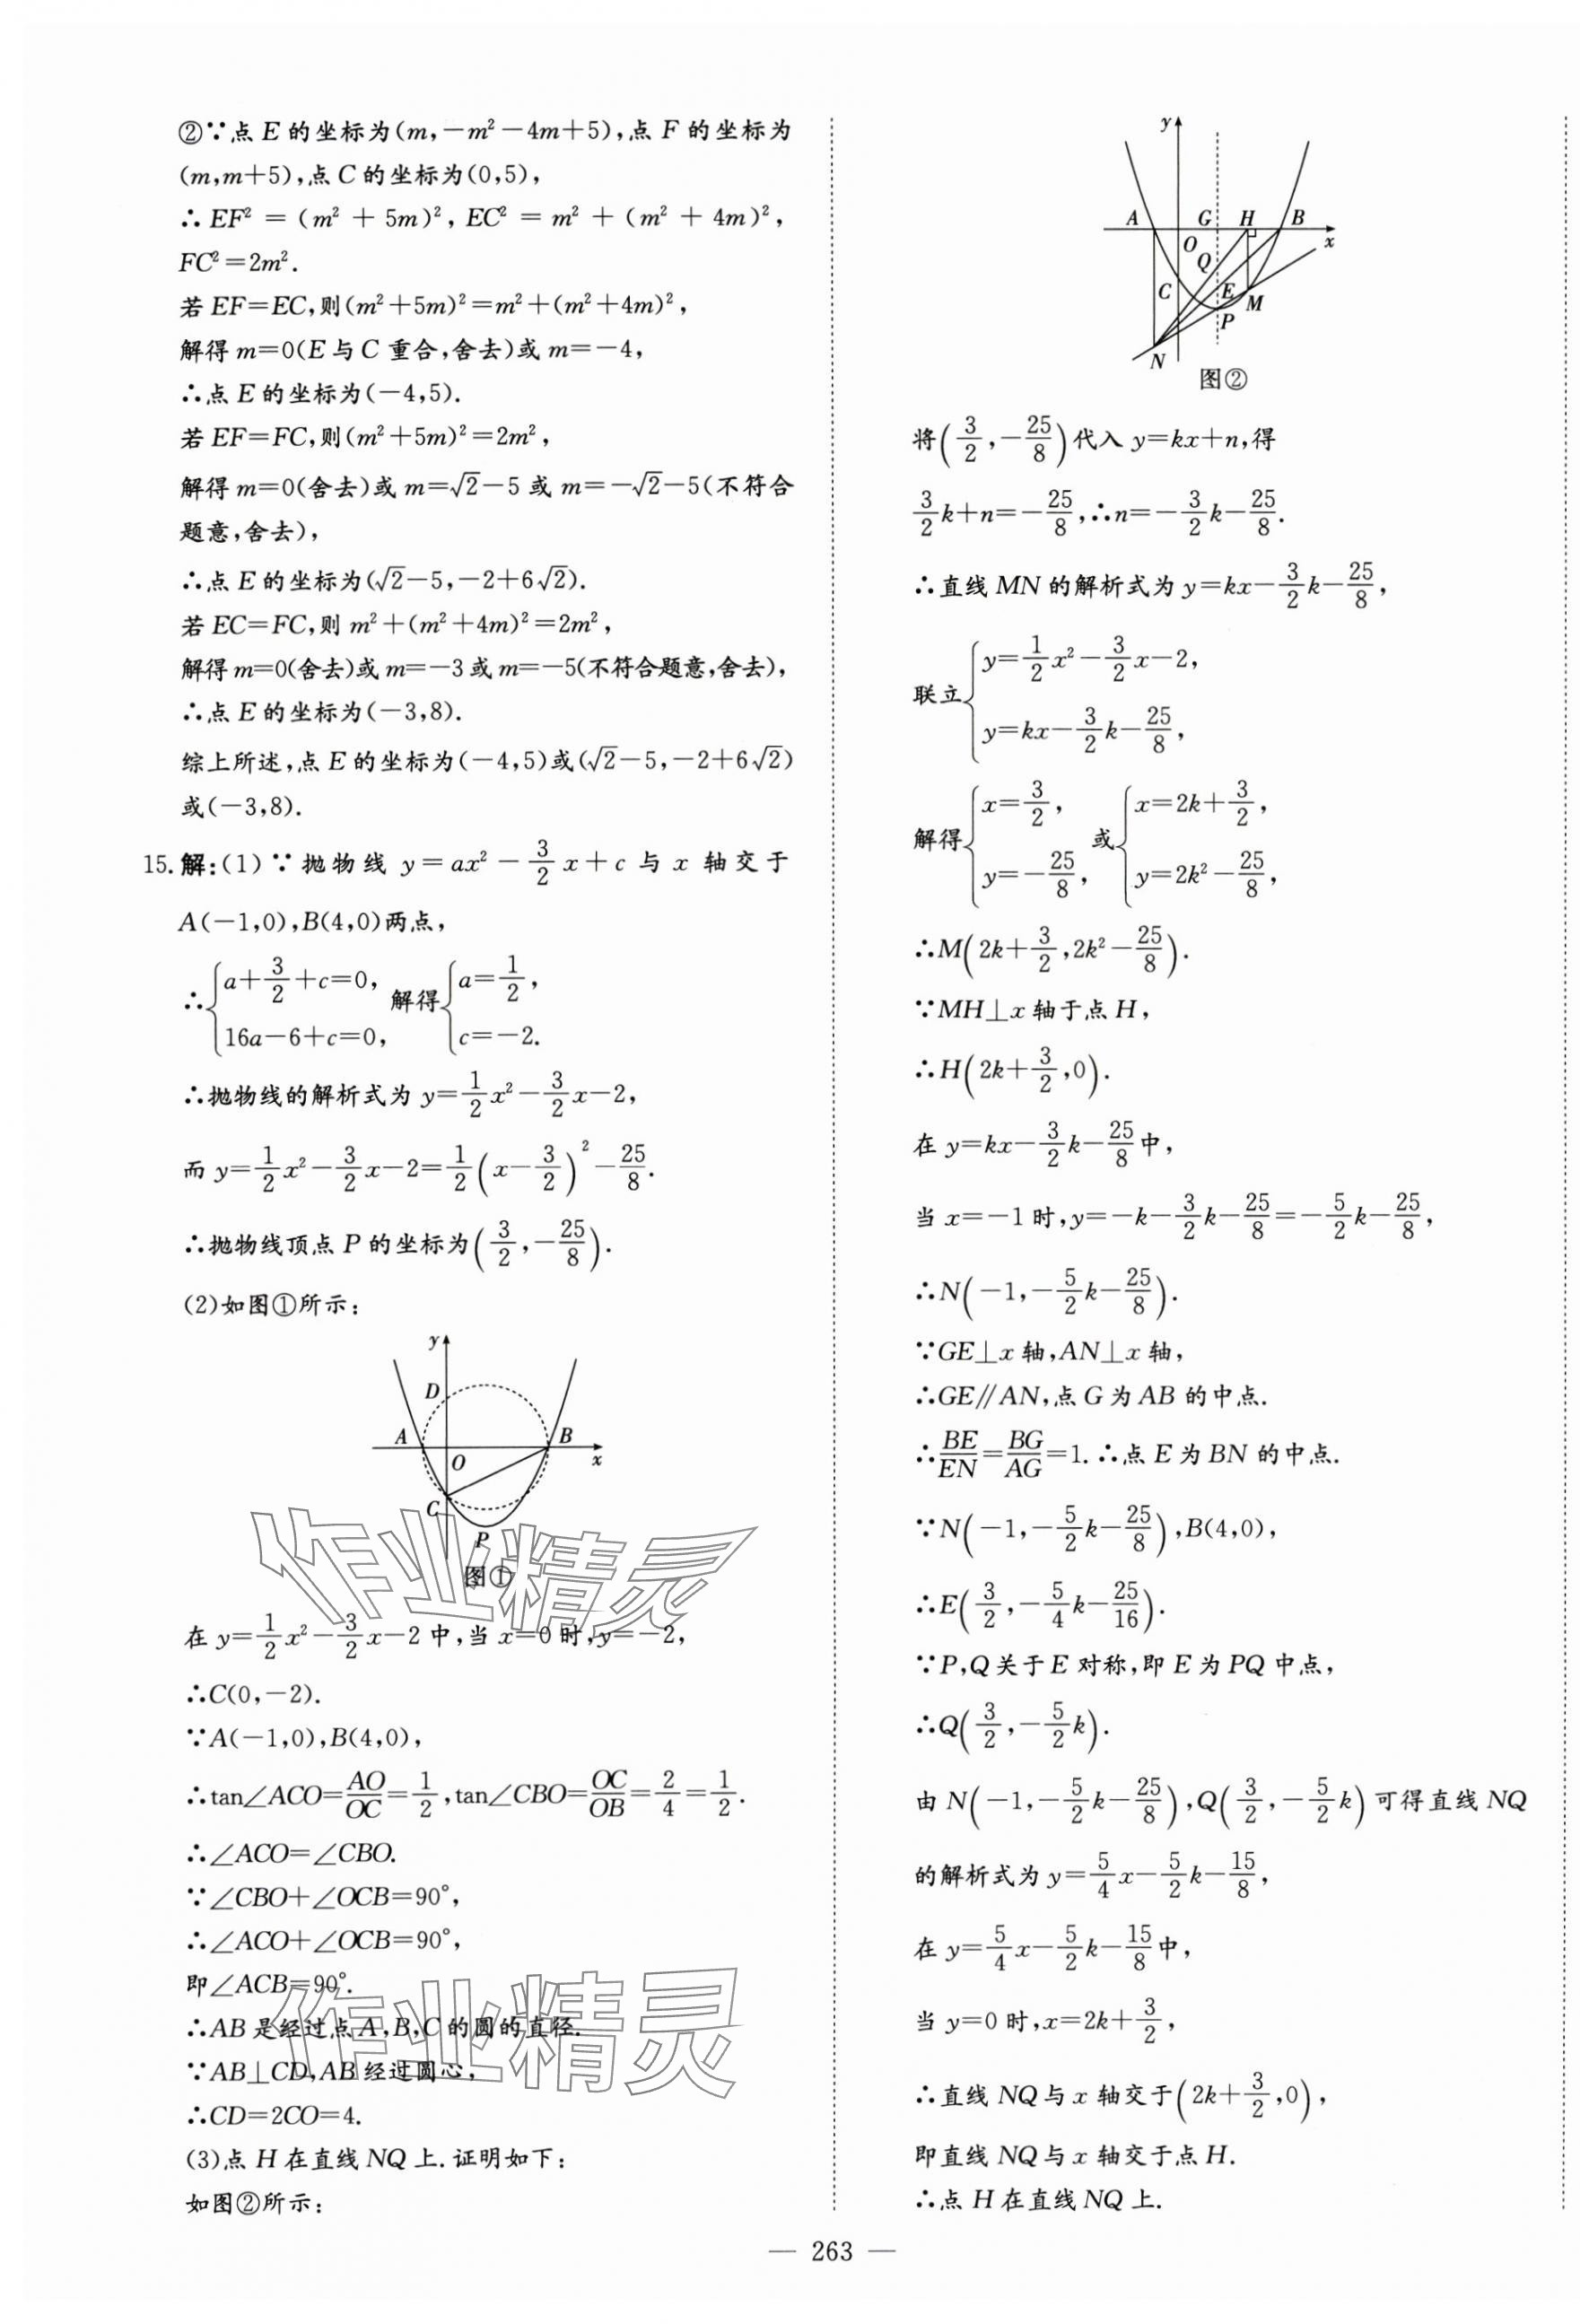 ②∵点 E 的坐标为(m,－m²－4m＋5),点 F 的坐标为
(m,m＋5),点 C 的坐标为(0,5),
∴EF²＝(m²＋5m)²,EC²＝m²＋(m²＋4m)²,
FC²＝2m².
若 EF＝EC,则(m²＋5m)²＝m²＋(m²＋4m)²,
解得 m＝0(E 与 C 重合,舍去)或 m＝－4,
∴点 E 的坐标为(－4,5).
若 EF＝FC,则(m²＋5m)²＝2m²,
解得 m＝0(舍去)或 m＝√2－5 或 m＝－√2－5(不符合
题意,舍去),
∴点 E 的坐标为(√2－5,－2＋6√2).
若 EC＝FC,则 m²＋(m²＋4m)²＝2m²,
解得 m＝0(舍去)或 m＝－3 或 m＝－5(不符合题意,舍去),
∴点 E 的坐标为(－3,8).
综上所述,点 E 的坐标为(－4,5)或(√2－5,－2＋6√2)
或(－3,8).
15. 解:(1)∵抛物线 y＝ax²－3/2 x＋c 与 x 轴交于
A(－1,0),B(4,0)两点,
∴{a＋3/2＋c＝0, 16a－6＋c＝0, 解得{a＝1/2, c＝－2.
∴抛物线的解析式为 y＝1/2 x²－3/2 x－2,
而 y＝1/2 x²－3/2 x－2＝1/2(x－3/2)²－25/8.
∴抛物线顶点 P 的坐标为(3/2,－25/8).
(2)如图①所示:
y
D
A
B
O
x
C
P
图①
在 y＝1/2 x²－3/2 x－2 中,当 x＝0 时,y＝－2,
∴C(0,－2).
∵A(－1,0),B(4,0),
∴tan∠ACO＝AO/OC＝1/2,tan∠CBO＝OC/OB＝2/4＝1/2.
∴∠ACO＝∠CBO.
∵∠CBO＋∠OCB＝90°,
∴∠ACO＋∠OCB＝90°,
即∠ACB＝90°.
∴AB 是经过点 A,B,C 的圆的直径.
∵AB⊥CD,AB 经过圆心,
∴CD＝2CO＝4.
(3)点 H 在直线 NQ 上.证明如下:
如图②所示:
y
A
G
H
B
O
x
Q
C
E
M
P
N
图②
将(3/2,－25/8)代入 y＝kx＋n,得
3/2 k＋n＝－25/8,∴n＝－3/2 k－25/8.
∴直线 MN 的解析式为 y＝kx－3/2 k－25/8,
联立{y＝1/2 x²－3/2 x－2, y＝kx－3/2 k－25/8,
解得{x＝3/2, y＝－25/8, 或{x＝2k＋3/2, y＝2k²－25/8,
∴M(2k＋3/2,2k²－25/8).
∵MH⊥x 轴于点 H,
∴H(2k＋3/2,0).
在 y＝kx－3/2 k－25/8中,
当 x＝－1 时,y＝－k－3/2 k－25/8＝－5/2 k－25/8,
∴N(－1,－5/2 k－25/8).
∵GE⊥x 轴,AN⊥x 轴,
∴GE∥AN,点 G 为 AB 的中点.
∴BE/EN＝BG/AG＝1.∴点 E 为 BN 的中点.
∵N(－1,－5/2 k－25/8),B(4,0),
∴E(3/2,－5/4 k－25/16).
∵P,Q 关于 E 对称,即 E 为 PQ 中点,
∴Q(3/2,－5/2 k).
由 N(－1,－5/2 k－25/8),Q(3/2,－5/2 k)可得直线 NQ
的解析式为 y＝5/4 x－5/2 k－15/8,
在 y＝5/4 x－5/2 k－15/8中,
当 y＝0 时,x＝2k＋3/2,
∴直线 NQ 与 x 轴交于(2k＋3/2,0),
即直线 NQ 与 x 轴交于点 H.
∴点 H 在直线 NQ 上.
作业精灵
作业精灵
— 263 —